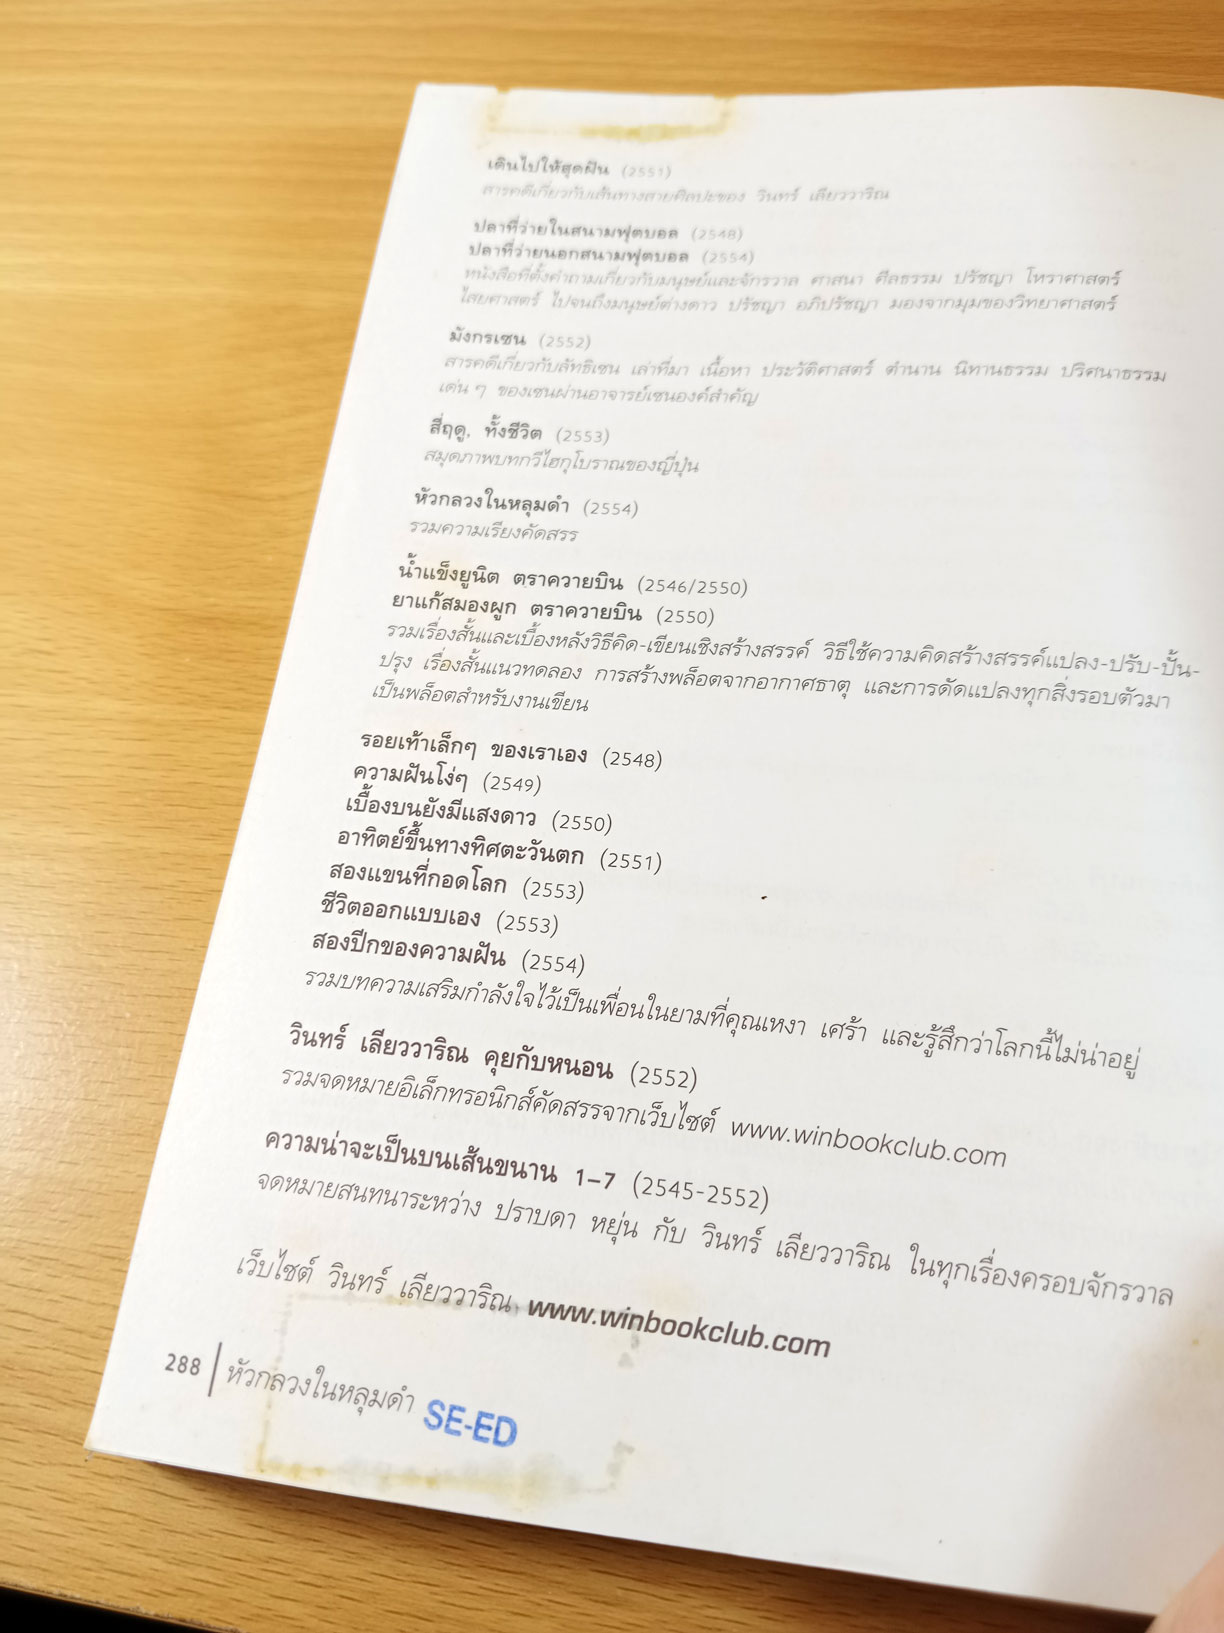 เดินไปให้สุดฝัน (2551)
สารคดีเกี่ยวกับเส้นทางสายศิลปะของ วินทร์ เลียววาริณ
ปลาที่ว่ายในสนามฟุตบอล (2548)
ปลาที่ว่ายนอกสนามฟุตบอล (2554)
หนังสือที่ตั้งคำถามเกี่ยวกับมนุษย์และจักรวาล ศาสนา ศีลธรรม ปรัชญา โหราศาสตร์
ไสยศาสตร์ ไปจนถึงมนุษย์ต่างดาว ปรัชญา อภิปรัชญา มองจากมุมของวิทยาศาสตร์
มังกรเซน (2552)
สารคดีเกี่ยวกับลัทธิเซน เล่าที่มา เนื้อหา ประวัติศาสตร์ ตำนาน นิทานธรรม ปริศนาธรรม
เด่น ๆ ของเซนผ่านอาจารย์เซนองค์สำคัญ
สี่ฤดู, ทั้งชีวิต (2553)
สมุดภาพบทกวีไฮกุโบราณของญี่ปุ่น
หัวกลวงในหลุมดำ (2554)
รวมความเรียงคัดสรร
น้ำแข็งยูนิต ตราควายบิน (2546/2550)
ยาแก้สมองผูก ตราควายบิน (2550)
รวมเรื่องสั้นและเบื้องหลังวิธีคิด-เขียนเชิงสร้างสรรค์ วิธีใช้ความคิดสร้างสรรค์แปลง-ปรับ-ปั้น-
ปรุง เรื่องสั้นแนวทดลอง การสร้างพล็อตจากอากาศธาตุ และการดัดแปลงทุกสิ่งรอบตัวมา
เป็นพล็อตสำหรับงานเขียน
รอยเท้าเล็กๆ ของเราเอง (2548)
ความฝันโง่ๆ (2549)
เบื้องบนยังมีแสงดาว (2550)
อาทิตย์ขึ้นทางทิศตะวันตก (2551)
สองแขนที่กอดโลก (2553)
ชีวิตออกแบบเอง (2553)
สองปีกของความฝัน (2554)
รวมบทความเสริมกำลังใจไว้เป็นเพื่อนในยามที่คุณเหงา เศร้า และรู้สึกว่าโลกนี้ไม่น่าอยู่
วินทร์ เลียววาริณ คุยกับหนอน (2552)
รวมจดหมายอิเล็กทรอนิกส์คัดสรรจากเว็บไซต์ www.winbookclub.com
ความน่าจะเป็นบนเส้นขนาน 1–7 (2545-2552)
จดหมายสนทนาระหว่าง ปราบดา หยุ่น กับ วินทร์ เลียววาริณ ในทุกเรื่องครอบจักรวาล
เว็บไซต์ วินทร์ เลียววาริณ www.winbookclub.com
288 | หัวกลวงในหลุมดำ
SE-ED